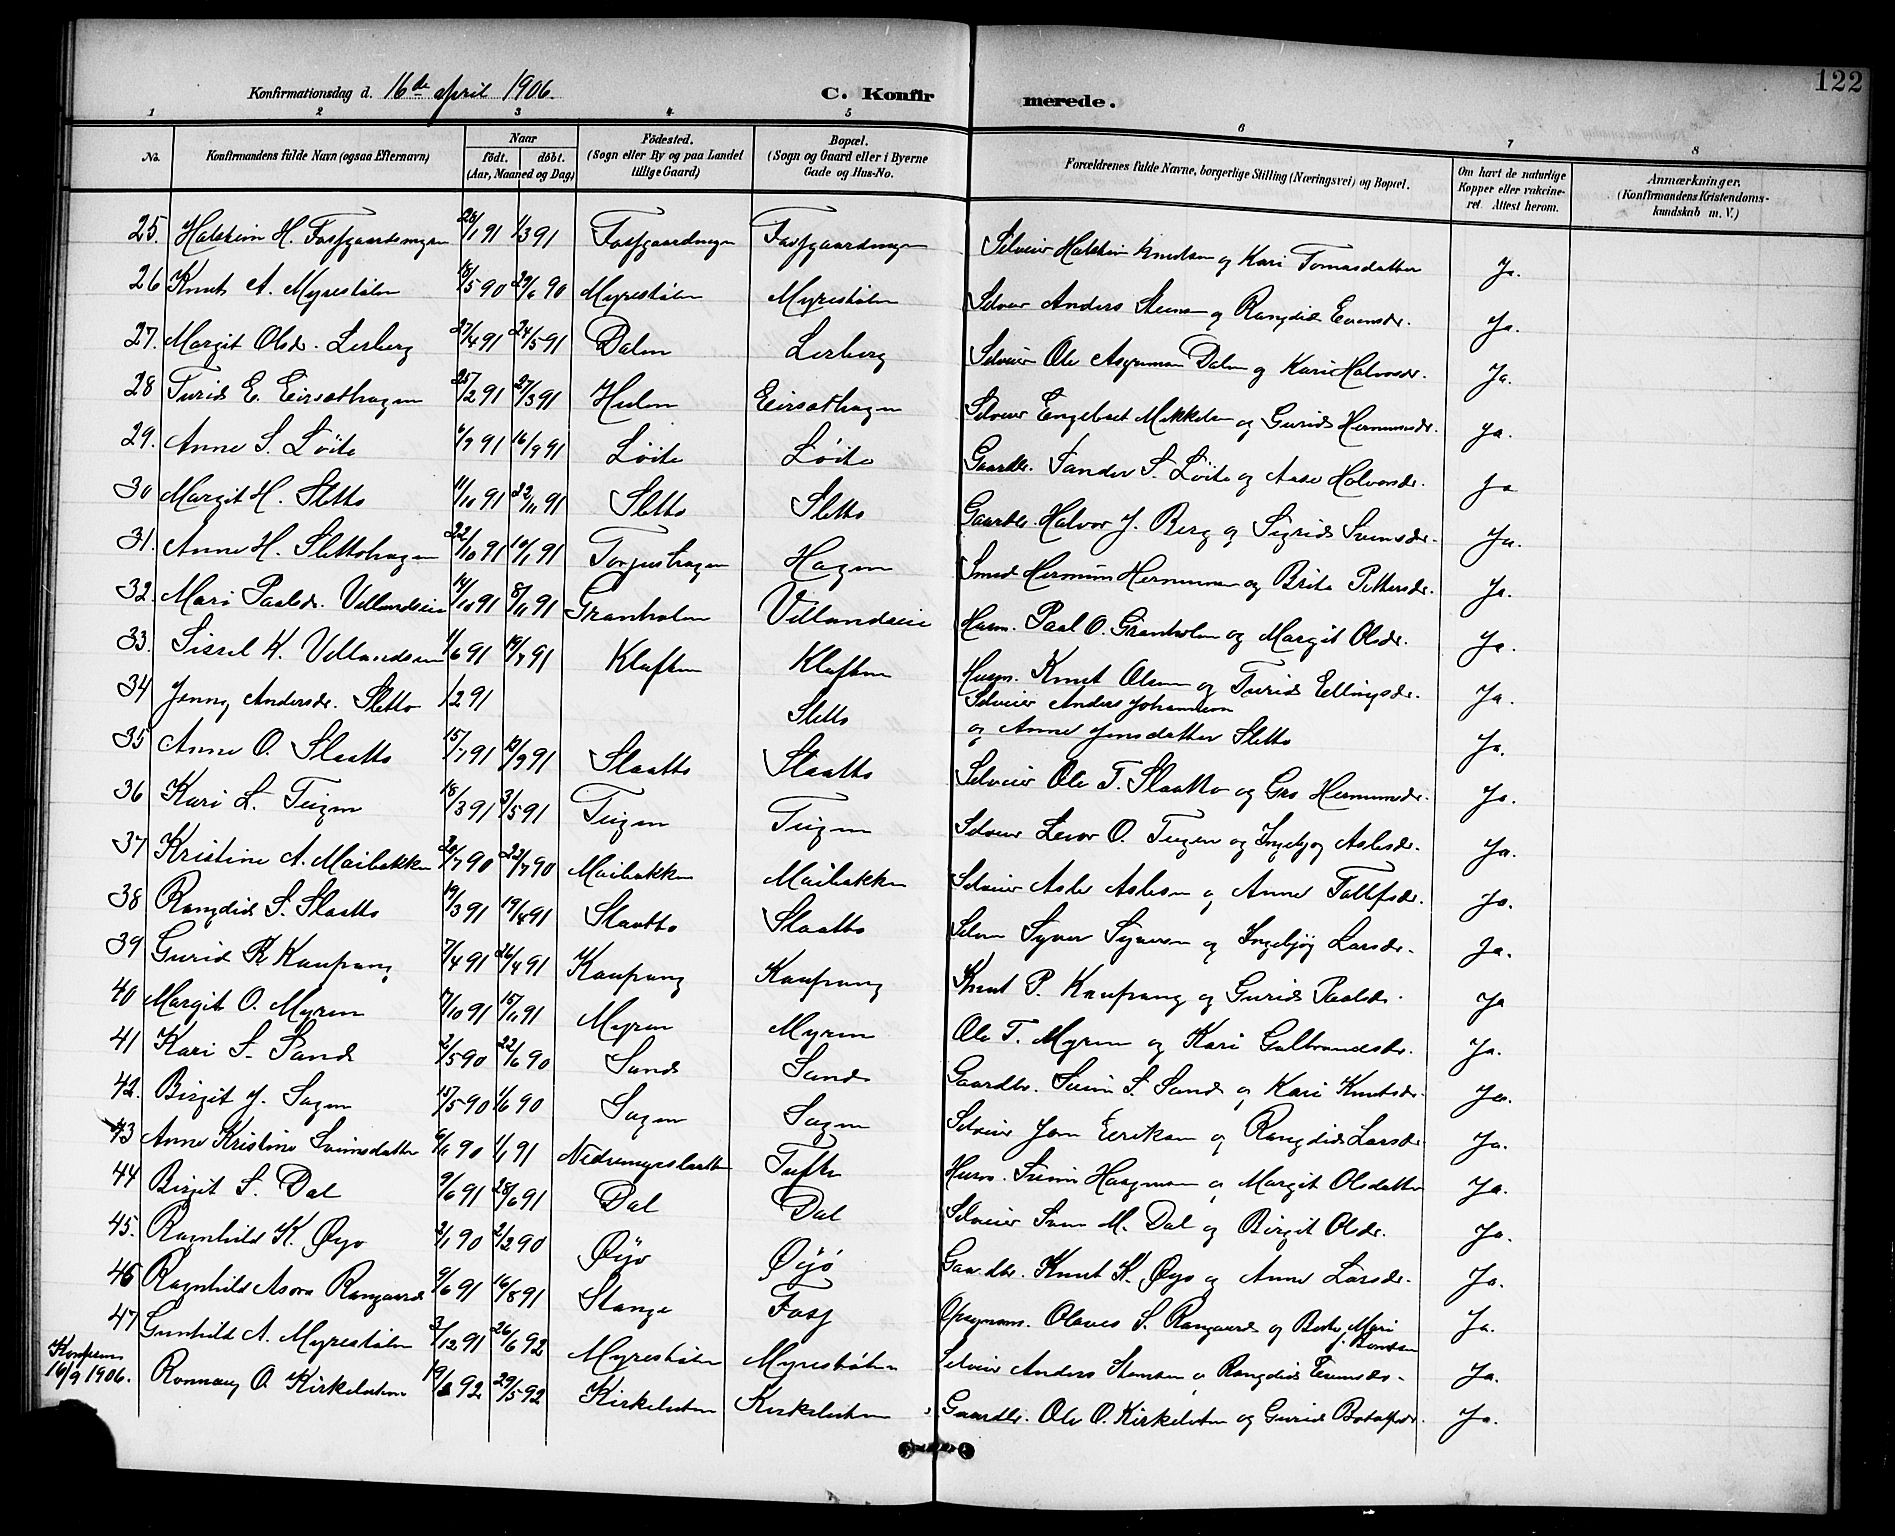 122
Konfirmationsdag d. 16de april 1906.
C. Konfirmerede.
1 2 3 4 5 6 7 8
No. Konfirmandens fulde Navn (ogsaa Efternavn) Naar født. døbt. (Aar, Maaned og Dag) Fødested. (Sogn eller By og paa Landet tillige Gaard) Bopæl. (Sogn og Gaard eller i Byerne Gade og Hus-No. Forældrenes fulde Navne, borgerlige Stilling (Næringsvei) og Bopæl. Om havt de naturlige Kopper eller vakcineret. Attest herom. Anmærkninger. (Konfirmandens Kristendomskundskab m. V.)
25. Halstein H. Fossgaardsengen 28/1 91 1/3 91 Fossgaardengen Fossgaardengen Selveier Halstein Knudsen og Kari Tomasdatter Ja.
26 Knut A. Myrestølen 18/5 90 29/6 90 Myrestølen Myrestølen Selveier Anders Steensen og Rangdid Evensdr. Ja.
27. Margit Olsdr. Lerberg 27/4 91 24/5 91 Dalen Lerberg Selveier Ole Asgrimsen Dalen og Kari Halvorsdr. Ja.
28 Turid E. Eirsethagen 25/2 91 27/3 91 Hulen Eirsethagen Selveier Engebret Mikkelsen og Gurid Hermunsdr. Ja.
29. Anne S. Løite 6/7 91 16/9 91 Løite Løite Gaardbr. Sander S. Løite og Aase Halvorsdr. Ja
30 Margit H. Sletto 11/10 91 22/11 91 Sletto Sletto Gaardbr. Halvor J. Berg og Sigrid Svensdr. Ja.
31. Anne H. Slettohagen 22/10 91 10/1 91 Torjushagen Hagen Smed Hermun Hermunsen og Brita Pettersdr. Ja.
32. Mari Paalsdr. Villandseie 14/10 91 8/11 91 Granholen Villandseie Husm. Paal O. Granholen og Margit Olsdr. Ja.
33. Sissel K. Villandseie 1/6 91 19/7 91 Kluften Kluften Husm. Knut Olsen og Turid Ellingsdr. Ja.
34 Jenny Andersdr. Sletto 1/2 91 Sletto Selveier Anders Johannesen og Anne Jensdatter Sletto Ja.
35 Anne O. Slaatto 15/7 91 13/9 91 Slaatto Slaatto Selveier Ole T. Slaatto og Gro Hermunsdr. Ja.
36 Kari L. Teigen 18/3 91 3/5 91 Teigen Teigen Selveier Levor O. Teigen og Ingebjog Aslesdr. Ja.
37 Kristine A. Maibakken 20/7 90 22/7 90 Maibakken Maibakken Selveier Asle Aslesen og Anne Tollefsdr. Ja.
38 Rangdid S. Slaatto 19/3 91 19/4 91 Slaatto Slaatto Selvei Syver Syversen og Ingebjøg Larsdr. Ja.
39 Gurid K. Kaupang 7/4 91 26/4 91 Kaupang Kaupang Knut P. Kaupang og Gurid Paalsdr. Ja
40 Margit O. Myren 7/10 91 15/11 91 Myren Myren Ole T. Myren og Kari Gulbrandsdr. Ja.
41 Kari S. Sand 2/5 90 22/6 90 Sand Sand Gaardbr. Svein S. Sand og Kari Knutsdr. Ja.
42. Birgit J. Sagen 15/5 90 1/6 90 Sagen Sagen Selveier Jon Eeriksen og Rangdid Larsdr Ja.
43 Anne Kristine Sveinsdatter 6/6 90 1/1 91 Nedremyrslaatten Tufte Husm. Svein Haagensen og Margit Olsdatter Ja.
44 Birgit S. Dal 9/6 91 28/6 91 Dal Dal Selveier Sven M. Dal og Birgit Olsdr. Ja.
45. Ragnhild K. Øyo 2/1 90 2/2 90 Øijo Øijo Gaardbr. Knut K. Øyo og Anne Larsdr. Ja.
46 Ragnhild Asora Rangaard 9/6 91 16/8 91 Stange Foss Opsynsm. Olaves S. Rangaard og Berte Mari Ja.
47 Gunhild A. Myrestølen 3/12 91 26/6 92 Myrestølen Myrestølen Selveier Anders Stensen og Rangdid Evensdr. Ja.
16/9 1906. Ronnaug O. Kirkelieten 19/2 92 29/5 92 Kirkelieten Kirkelieten Gaardbr. Ole O. Kirkelieten og Gurid Botolfsdr. Ja.